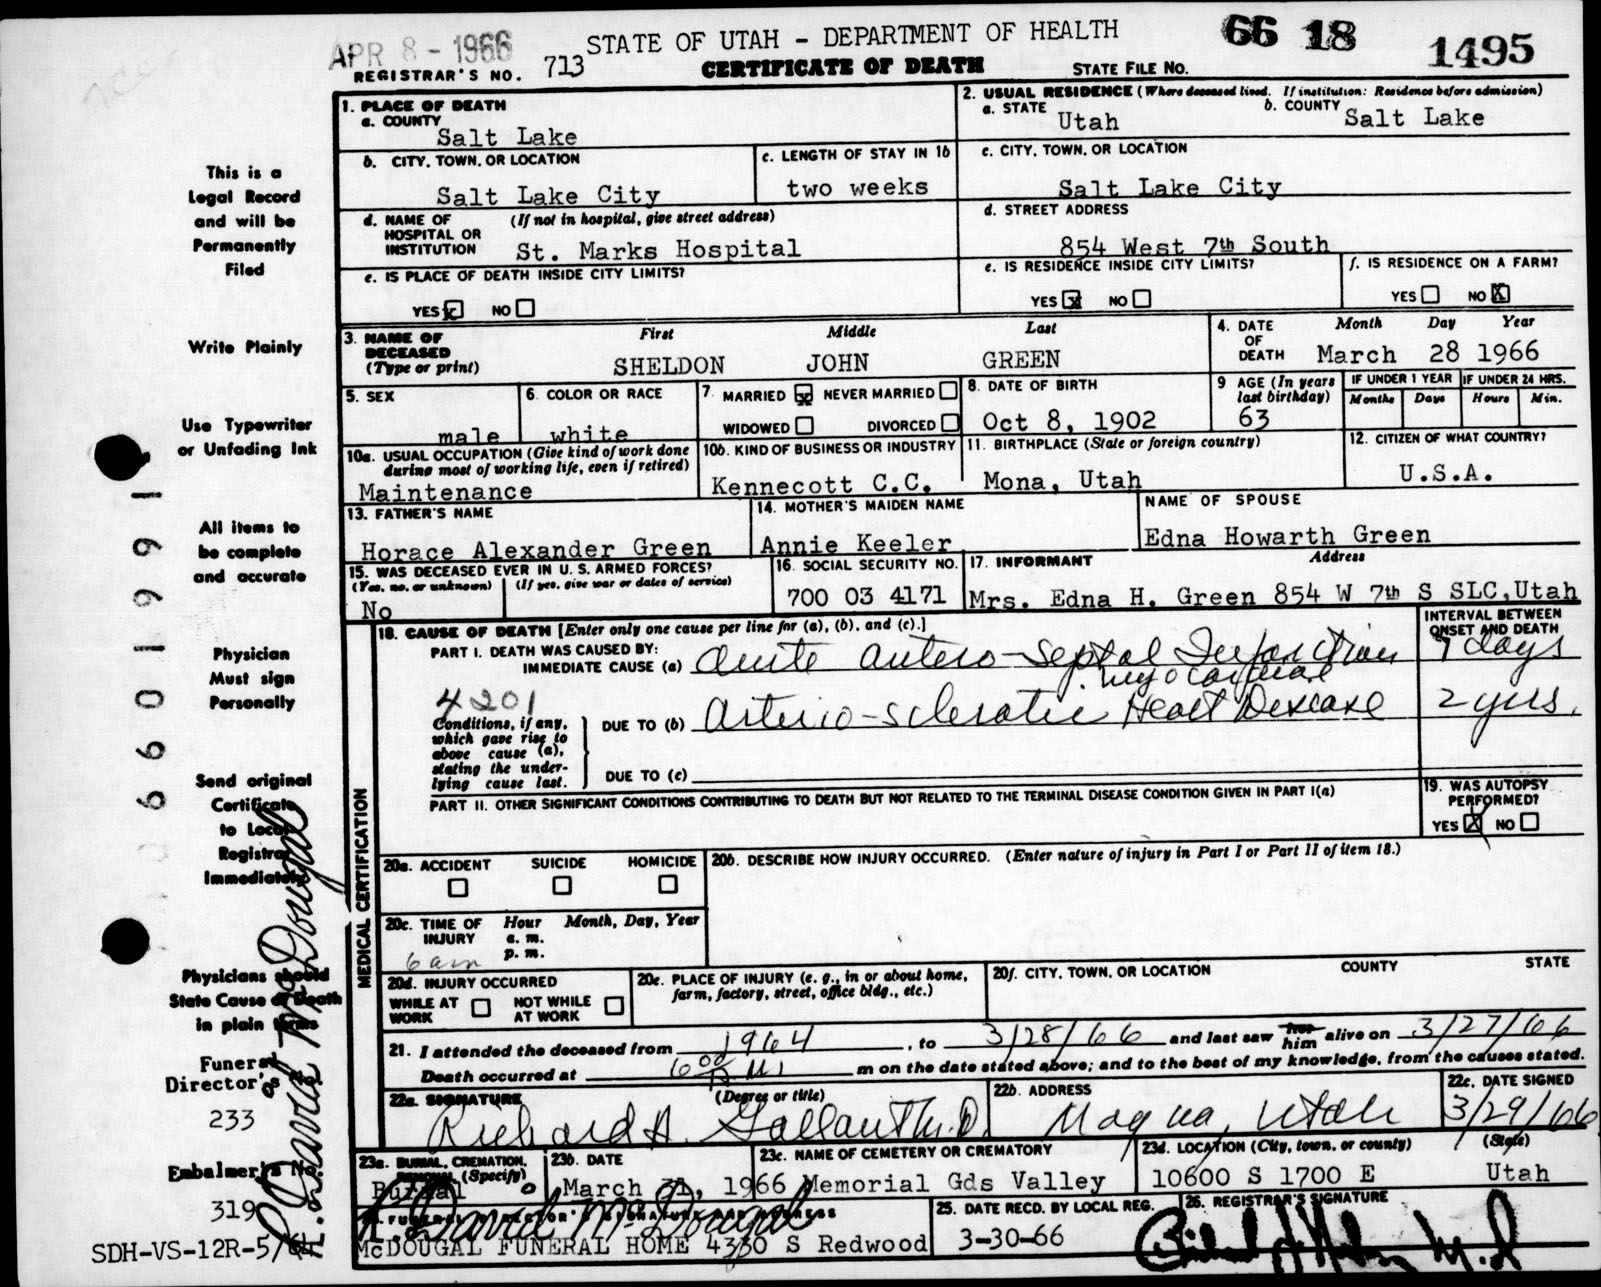 APR 8 - 1966
STATE OF UTAH - DEPARTMENT OF HEALTH
66 18 1495
REGISTRAR'S NO. 713
CERTIFICATE OF DEATH
STATE FILE NO.
This is a
Legal Record
and will be
Permanently
Filed
Write Plainly
Use Typewriter
or Unfading Ink
All items to
be complete
and accurate
Physician
Must sign
Personally
Send original
Certificate
to Local
Registrar
Immediately
Physicians should
State Cause of Death
in plain terms
Funeral
Director's
233
Embalmer's No.
319
SDH-VS-12R-5/6
R. David McDougal
6601991
1. PLACE OF DEATH
a. COUNTY
Salt Lake
2. USUAL RESIDENCE (Where deceased lived. If institution: Residence before admission)
a. STATE Utah
b. COUNTY Salt Lake
b. CITY, TOWN, OR LOCATION
Salt Lake City
c. LENGTH OF STAY IN 1b
two weeks
c. CITY, TOWN, OR LOCATION
Salt Lake City
d. NAME OF HOSPITAL OR INSTITUTION (If not in hospital, give street address)
St. Marks Hospital
d. STREET ADDRESS
854 West 7th South
e. IS PLACE OF DEATH INSIDE CITY LIMITS?
YES x NO
e. IS RESIDENCE INSIDE CITY LIMITS?
YES x NO
f. IS RESIDENCE ON A FARM?
YES NO X
3. NAME OF DECEASED (Type or print)
First Middle Last
SHELDON JOHN GREEN
4. DATE OF DEATH
Month Day Year
March 28 1966
5. SEX
male
6. COLOR OR RACE
white
7. MARRIED x NEVER MARRIED
WIDOWED DIVORCED
8. DATE OF BIRTH
Oct 8, 1902
9 AGE (In years last birthday)
63
IF UNDER 1 YEAR
Months Days
IF UNDER 24 HRS.
Hours Min.
10a. USUAL OCCUPATION (Give kind of work done during most of working life, even if retired)
Maintenance
10b. KIND OF BUSINESS OR INDUSTRY
Kennecott C.C.
11. BIRTHPLACE (State or foreign country)
Mona, Utah
12. CITIZEN OF WHAT COUNTRY?
U.S.A.
13. FATHER'S NAME
Horace Alexander Green
14. MOTHER'S MAIDEN NAME
Annie Keeler
NAME OF SPOUSE
Edna Howarth Green
15. WAS DECEASED EVER IN U. S. ARMED FORCES?
(Yes, no, or unknown) (If yes, give war or dates of service)
No
16. SOCIAL SECURITY NO.
700 03 4171
17. INFORMANT Address
Mrs. Edna H. Green 854 W 7th S SLC,Utah
MEDICAL CERTIFICATION
18. CAUSE OF DEATH [Enter only one cause per line for (a), (b), and (c).]
INTERVAL BETWEEN ONSET AND DEATH
PART I. DEATH WAS CAUSED BY:
IMMEDIATE CAUSE (a) Acute antero-septal Infarction 7 days
myocardial
4201
Conditions, if any, which gave rise to above cause (a), stating the underlying cause last.
DUE TO (b) Arterio-sclerotic Heart Disease 2 yrs.
DUE TO (c)
PART II. OTHER SIGNIFICANT CONDITIONS CONTRIBUTING TO DEATH BUT NOT RELATED TO THE TERMINAL DISEASE CONDITION GIVEN IN PART I(a)
19. WAS AUTOPSY PERFORMED?
YES X NO
20a. ACCIDENT SUICIDE HOMICIDE
20b. DESCRIBE HOW INJURY OCCURRED. (Enter nature of injury in Part I or Part II of item 18.)
20c. TIME OF INJURY
Hour Month, Day, Year
a. m.
p. m.
6 am
20d. INJURY OCCURRED
WHILE AT WORK NOT WHILE AT WORK
20e. PLACE OF INJURY (e. g., in or about home, farm, factory, street, office bldg., etc.)
20f. CITY, TOWN, OR LOCATION COUNTY STATE
21. I attended the deceased from 1964, to 3/28/66 and last saw her him alive on 3/27/66
Death occurred at 6 00 A.M. m on the date stated above; and to the best of my knowledge, from the causes stated.
22a. SIGNATURE (Degree or title)
Richard A. Gallant M.D.
22b. ADDRESS
Magna, Utah
22c. DATE SIGNED
3/29/66
23a. BURIAL, CREMATION, REMOVAL (Specify)
Burial
23b. DATE
March 31, 1966
23c. NAME OF CEMETERY OR CREMATORY
Memorial Gds Valley
23d. LOCATION (City, town, or county) (State)
10600 S 1700 E Utah
24. FUNERAL DIRECTOR'S SIGNATURE AND ADDRESS
R. David McDougal
McDOUGAL FUNERAL HOME 4330 S Redwood
25. DATE RECD. BY LOCAL REG.
3-30-66
26. REGISTRAR'S SIGNATURE
M.D.